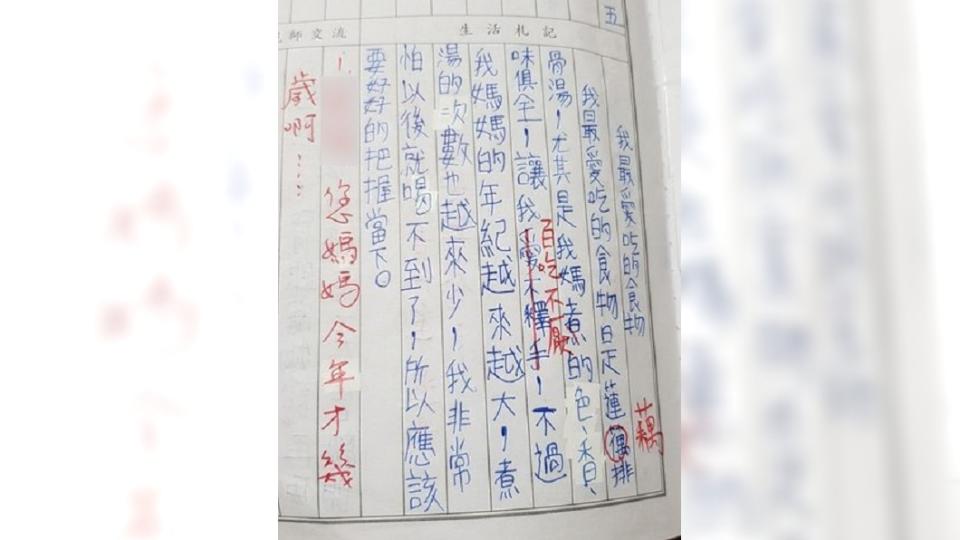 五
生活札記
師交流
我最愛吃的食物
藕
我最愛吃的食物是蓮偶排
骨湯，尤其是我媽煮的色、香、
百吃不厭
味俱全，讓我愛不釋手，不過
我媽媽的年紀越來越大，煮
湯的次數也越來少，我非常
怕以後就喝不到了，所以應該
要好好的把握當下。
1. 您媽媽今年才幾
歲啊……